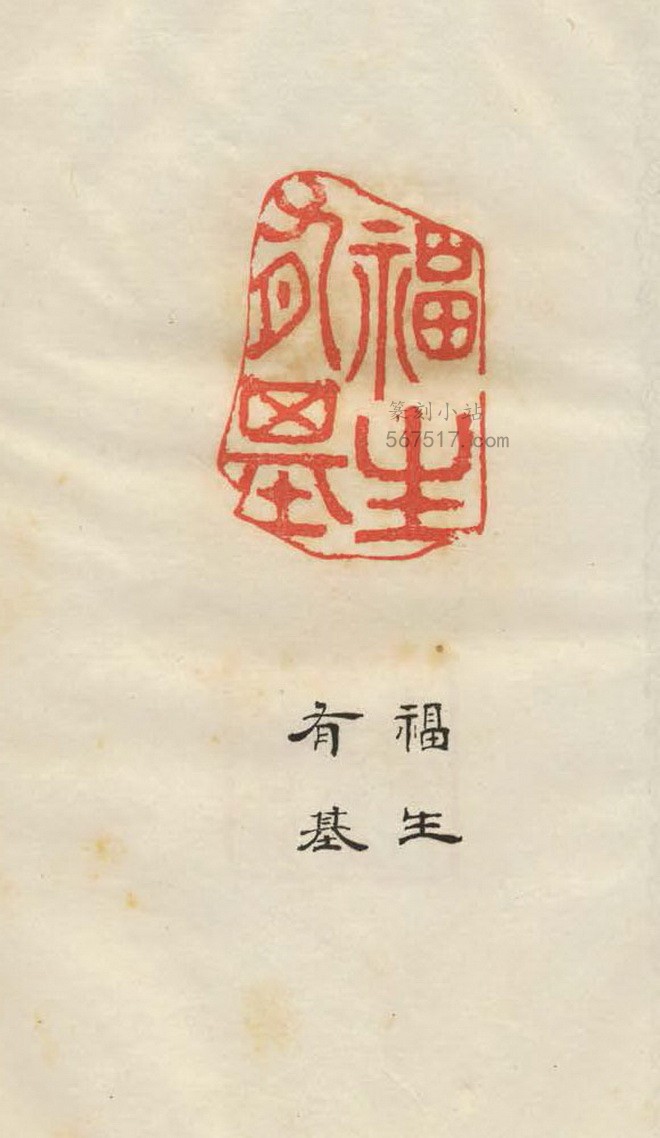 福生
有基
篆刻小站
567517.com
福生
有基